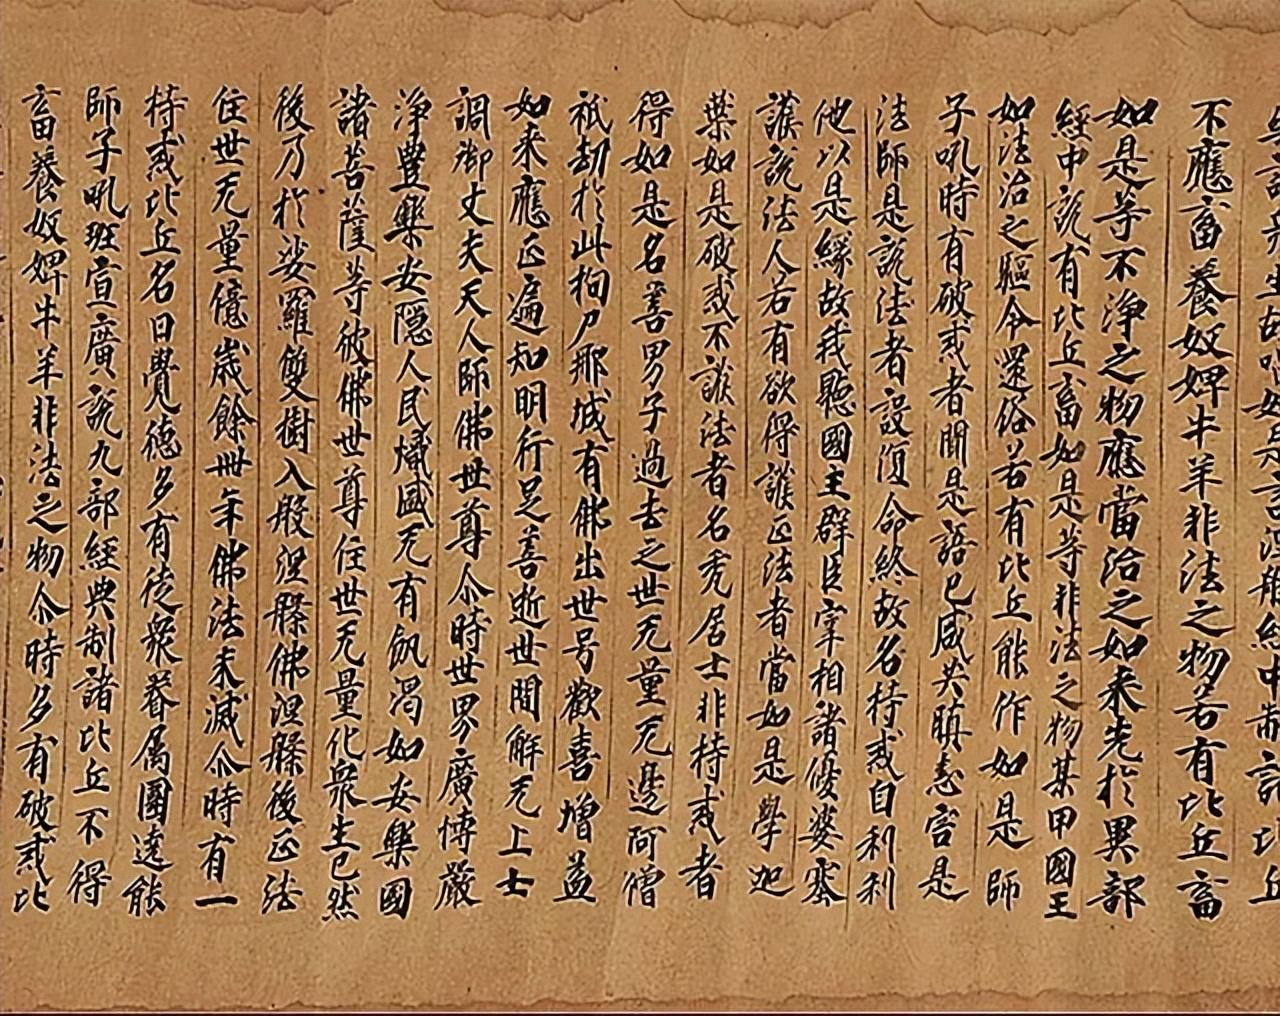 不應畜養奴婢牛羊非法之物若有比丘畜
如是等不淨之物應當治之如来先於異部
經中說有比丘畜如是等非法之物某甲國王
如法治之驅令還俗若有比丘能作如是師
子吼時有破戒者聞是語已咸共瞋恚害是
法師是說法者設復命終故名持戒自利利
他以是緣故我聽國王群臣宰相諸優婆塞
護說法人若有欲得護正法者當如是學迦
葉如是破戒不護法者名禿居士非持戒者
得如是名善男子過去之世无量无邊阿僧
祇劫於此拘尸那城有佛出世号歡喜增益
如来應正遍知明行足善逝世間解无上士
調御丈夫天人師佛世尊尒時世界廣博嚴
淨豊樂安隱人民熾盛无有飢渴如安樂國
諸菩薩等彼佛世尊住世无量化衆生已然
後乃於娑羅雙樹入般涅槃佛涅槃後正法
住世无量億歲餘卌年佛法未滅尒時有一
持戒比丘名曰覺德多有徒衆眷属圍遶能
師子吼班宣廣說九部經典制諸比丘不得
畜養奴婢牛羊非法之物尒時多有破戒比